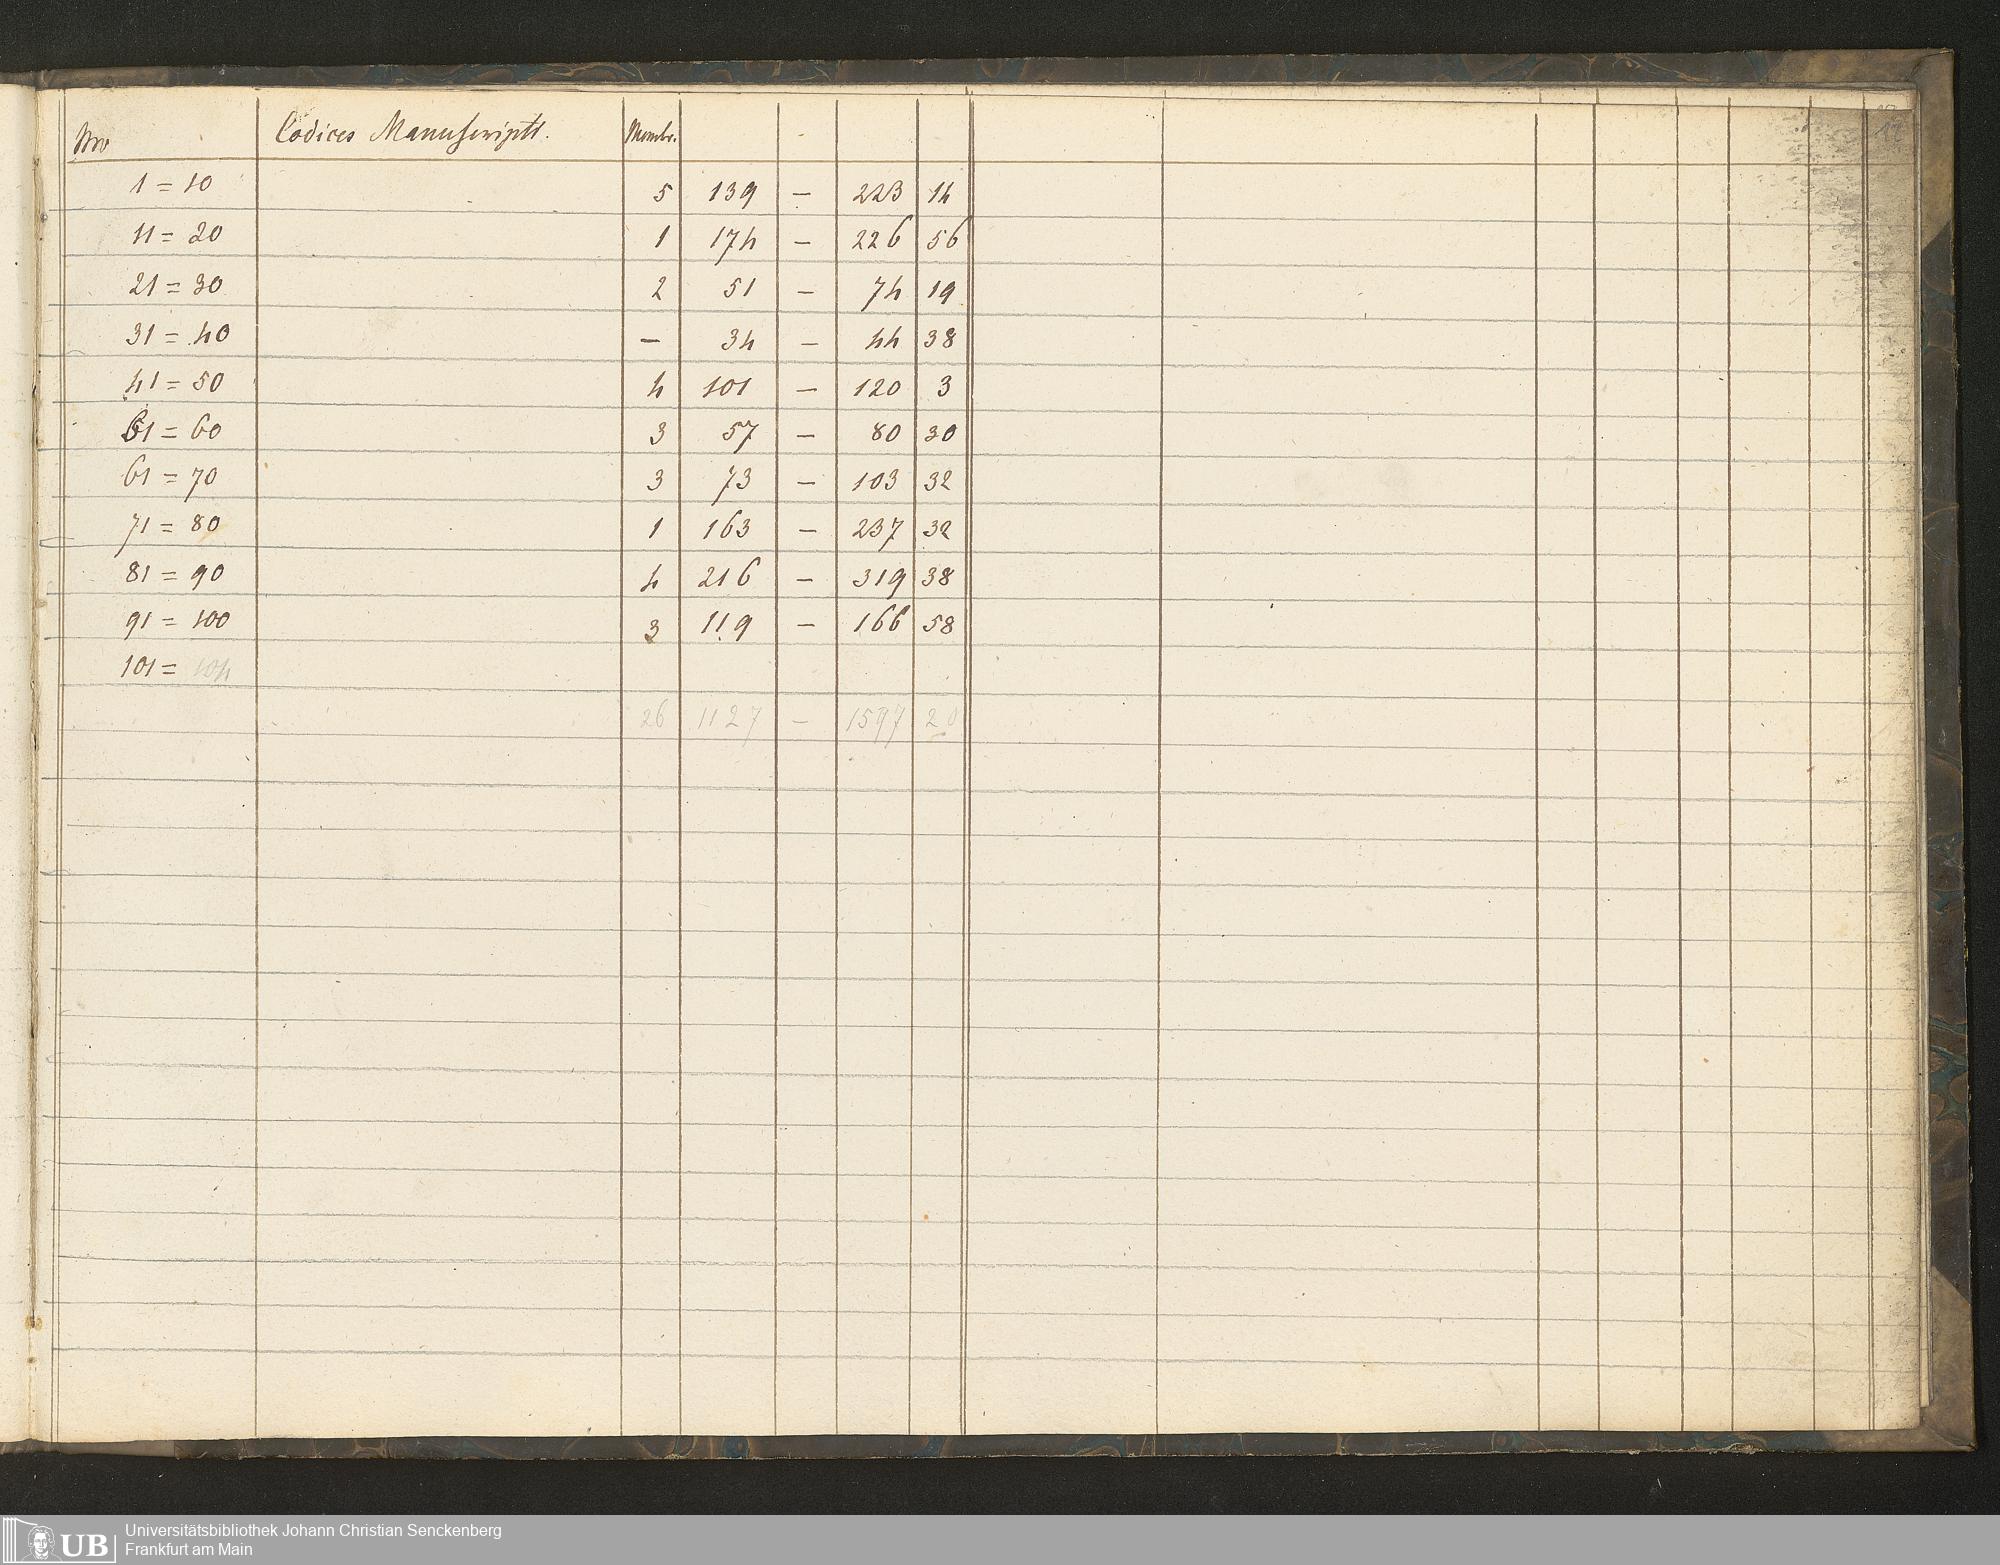 17
Nro Codices Manuscripti. Membr.
1 = 10 5 139 — 223 14
11 = 20 1 174 — 226 56
21 = 30 2 51 — 74 19
31 = 40 — 34 — 44 38
41 = 50 4 101 — 120 3
61 = 60 3 57 — 80 30
61 = 70 3 73 — 103 32
71 = 80 1 163 — 237 32
81 = 90 4 216 — 319 38
91 = 100 3 119 — 166 58
101 = 104
26 1127 — 1597 20
UB Universitätsbibliothek Johann Christian Senckenberg
Frankfurt am Main